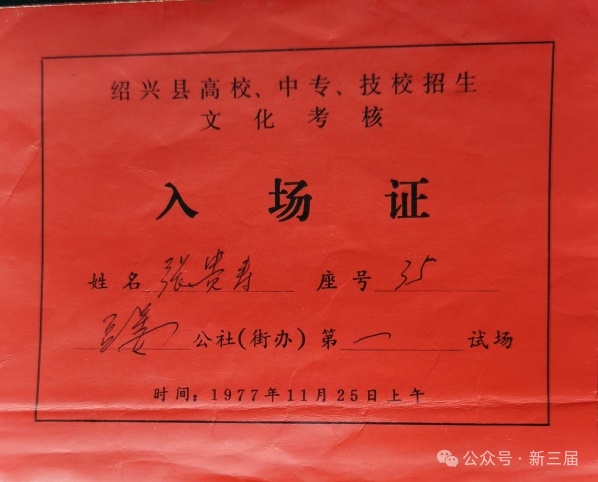 绍兴县高校、中专、技校招生
文化考核
入场证
姓名 张贵寿 座号 35
公社(街办)第一试场
时间：1977年11月25日上午
公众号·新三届